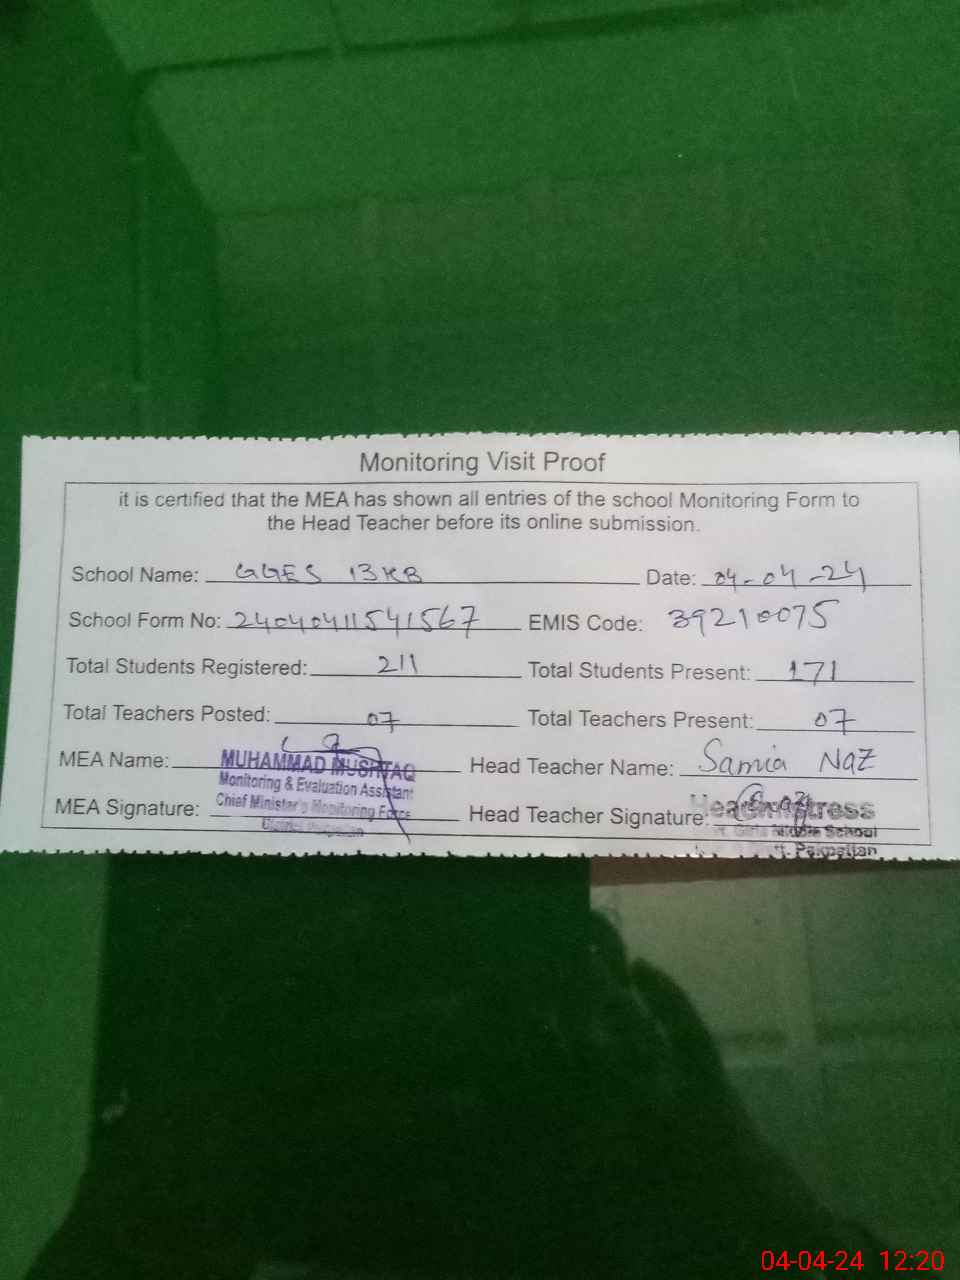 Monitoring Visit Proof
it is certified that the MEA has shown all entries of the school Monitoring Form to
the Head Teacher before its online submission.
School Name: GGES 13KB Date: 04-04-24
School Form No: 24040411541567 EMIS Code: 39210075
Total Students Registered: 211 Total Students Present: 171
Total Teachers Posted: 07 Total Teachers Present: 07
MEA Name: MUHAMMAD MUSHTAQ Head Teacher Name: Samia Naz
Monitoring & Evaluation Assistant
MEA Signature: Chief Minister's Monitoring Force Head Teacher Signature: Headmistress
District Pakpattan Girls Middle School
Pakpattan
04-04-24 12:20